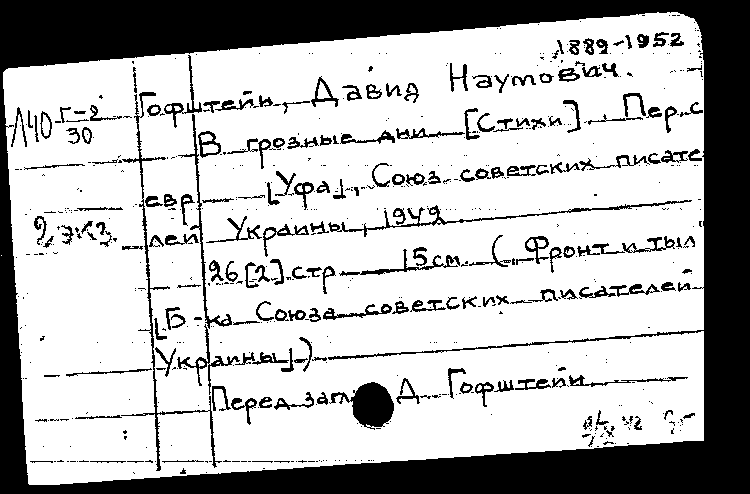 1889-1952
Гофштейн, Давид Наумович.
Л40 Г-2/30
В грозные дни [Стихи]. Пер. с
евр [Уфа], Союз советских писате
2 экз.
лей Украины, 1942.
26[2] стр 15 см. („Фронт и тыл"
[Б-ка Союза советских писателей
Украины])
Перед загл Д Гофштейн